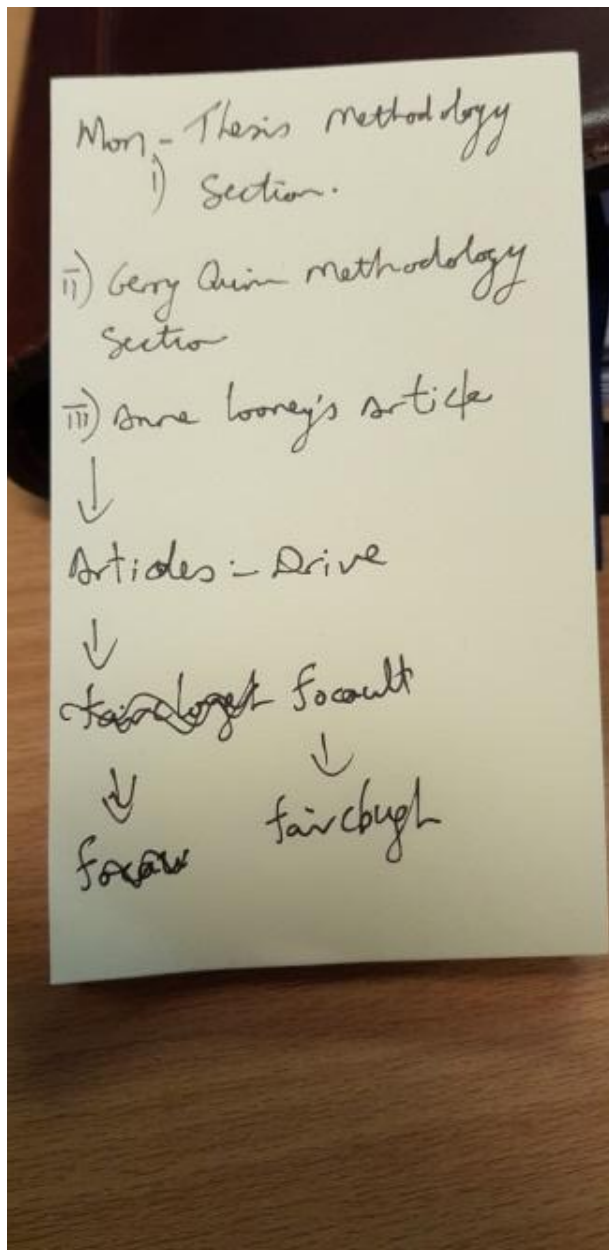 Mon - Thesis Methodology
i) Section.
ii) Gerry Quinn Methodology
Section
iii) Anne Looney's Article
Articles :- Drive
fairclough focault
fairclough
focau